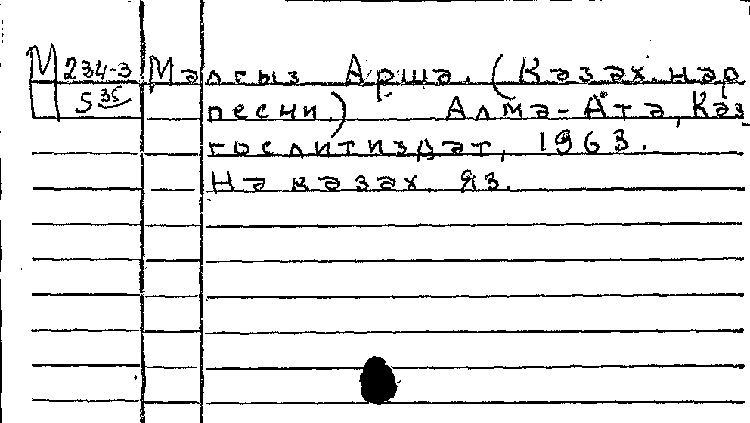 М 234-3 Малсыз Арша. (Казах. нар.
5 35 песни.) Алма-Ата, Каз
гослитиздат, 1963.
На казах. яз.